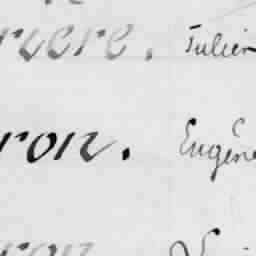 rcere. Julien
ron. Eugène
ron